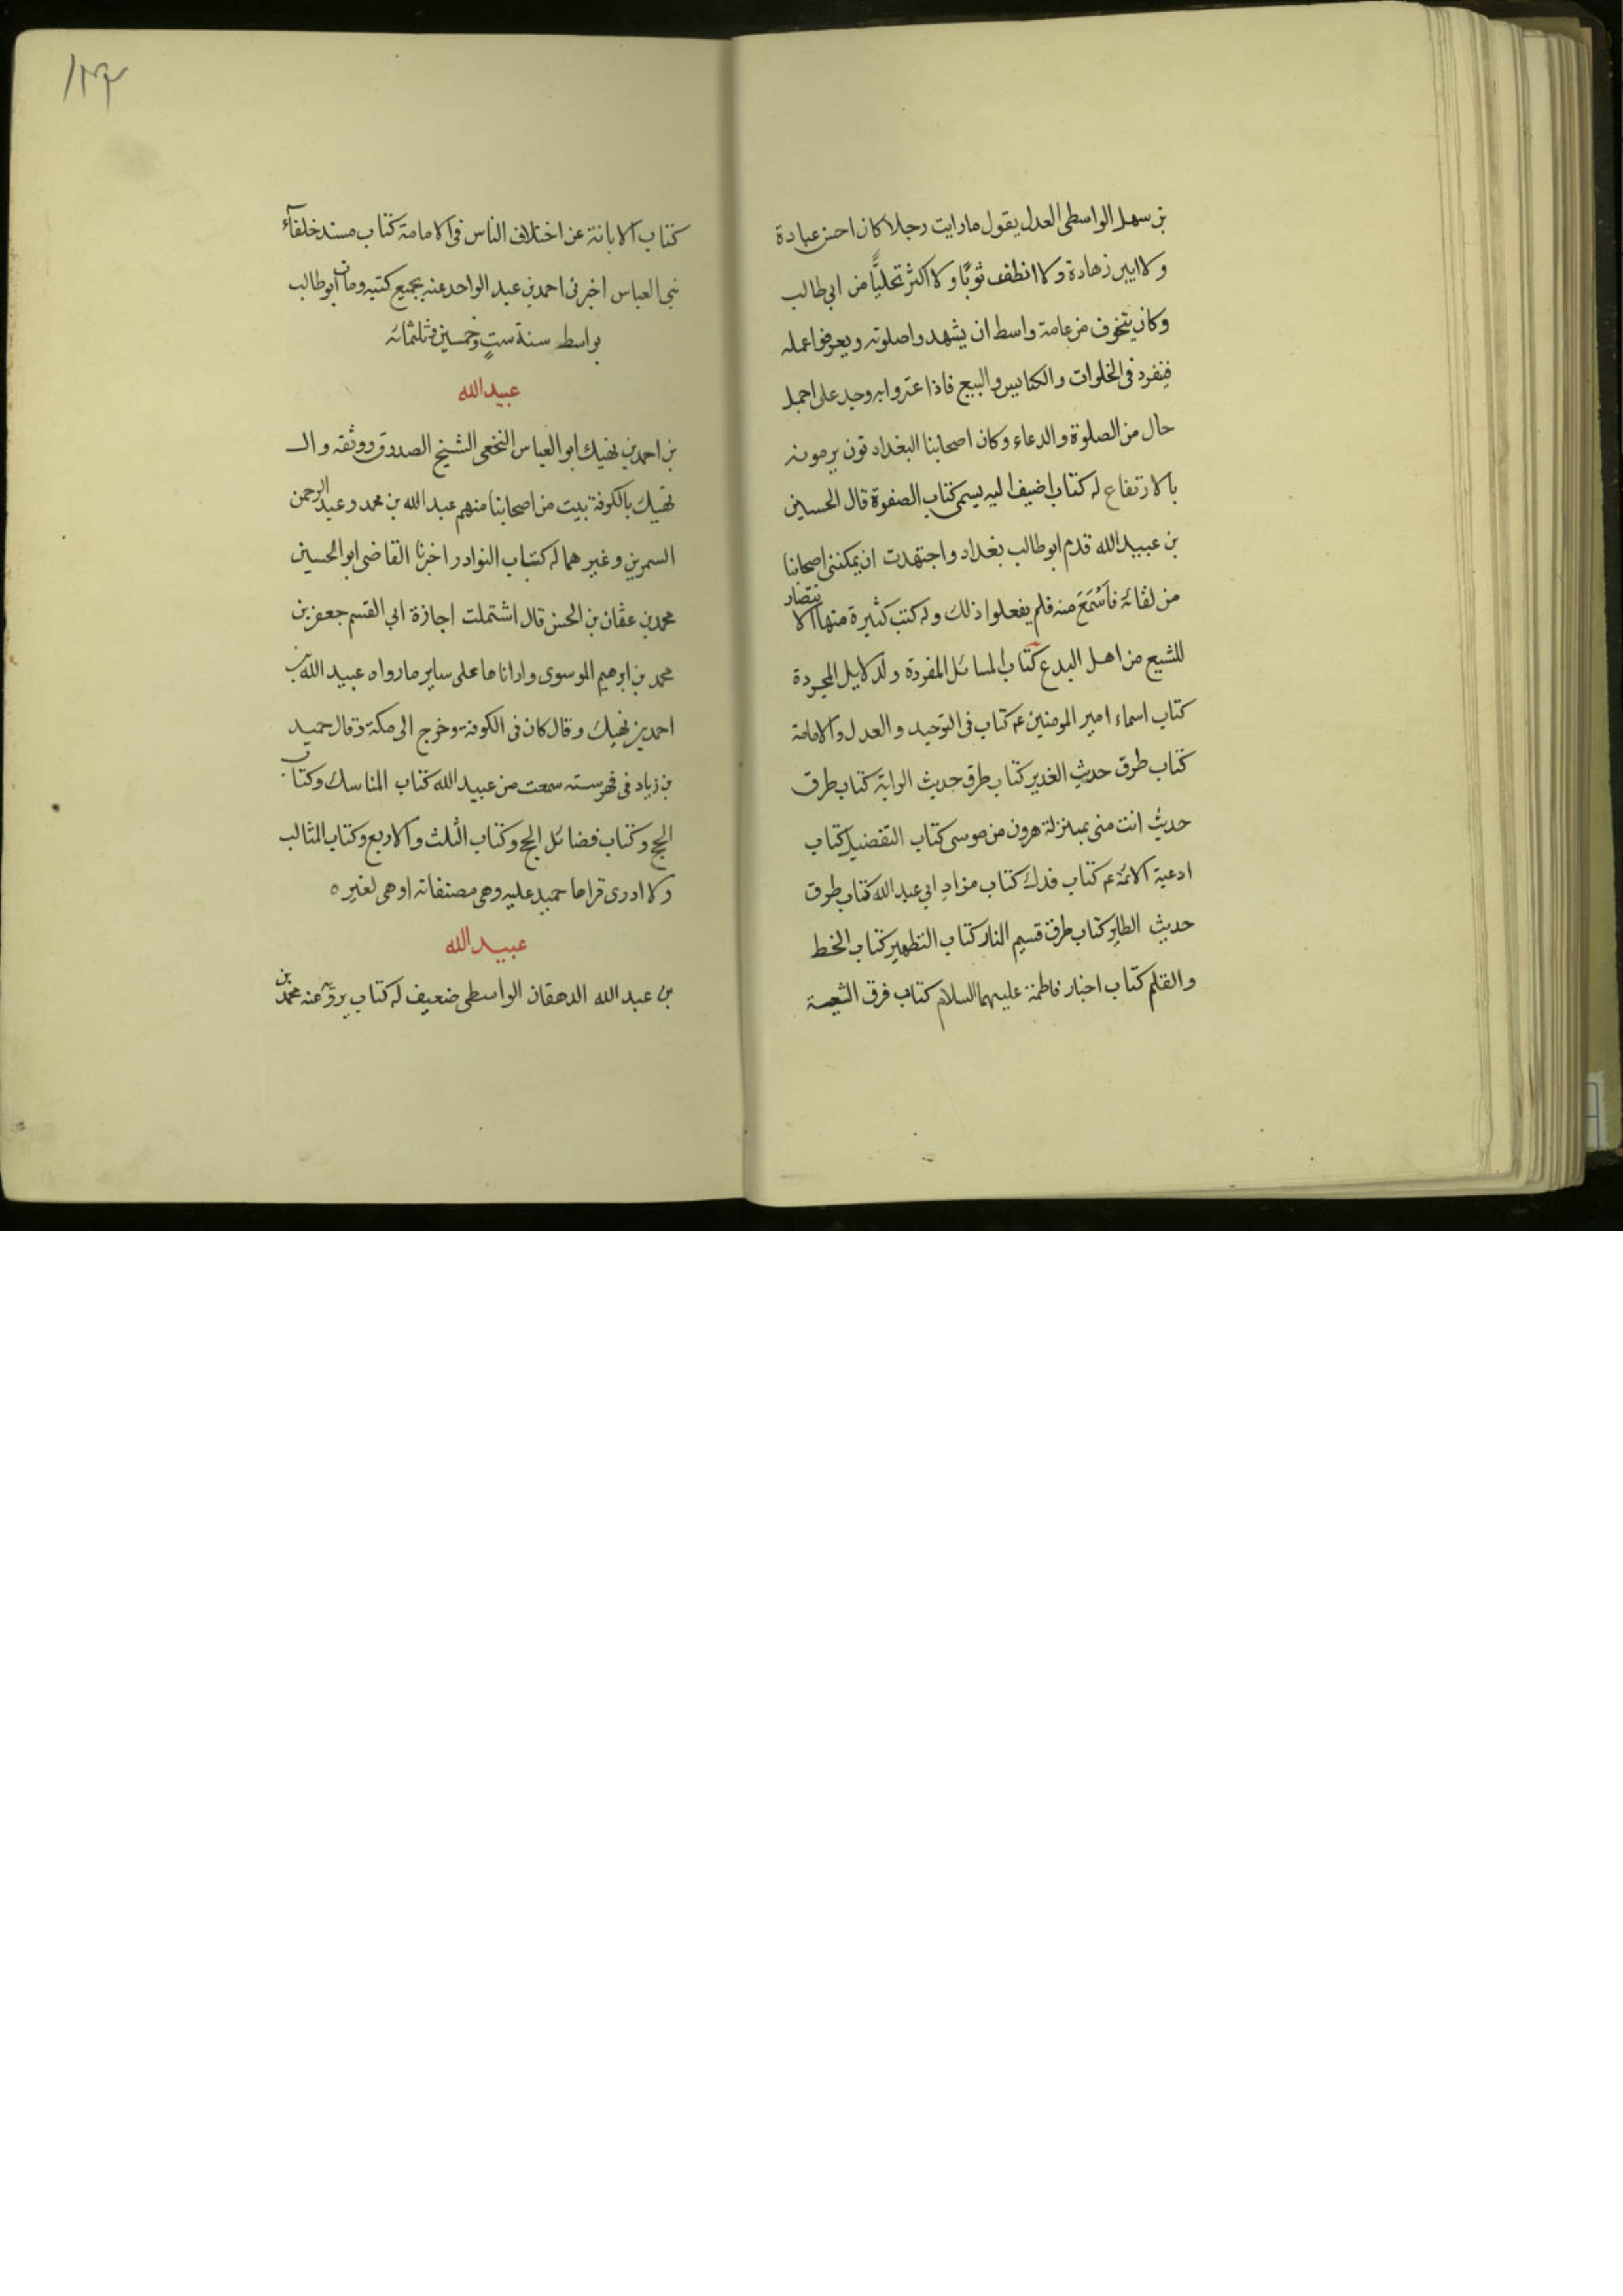 بن سهل الواسطى العدل يقول ما رايت رجلا كان احسن عبادة
ولا ابين زهادة ولا انظف ثوبًا ولا اكثر تحليًّا من ابى طالب
وكان يتخوف من عامة واسط ان يشهدوا صلوته ويعرفوا عمله
فينفرد فى الخلوات والكنايس والبيع فاذا عثروا به وجد على اجمل
حال من الصلوة والدعاء وكان اصحابنا البغداديون يرمونه
بالارتفاع له كتاب اضيف اليه يسمى كتاب الصفوة قال الحسين
بن عبيد الله قدم ابو طالب بغداد واجتهدت ان يمكننى اصحابنا
من لقائه فاسْمَعَ منه فلم يفعلوا ذلك وله كتب كثيرة منها الانتصار
للشيع من اهل البدع كتاب المسائل المفردة والدلايل المجردة
كتاب اسماء امير المومنين ع م كتاب فى التوحيد والعدل والامامة
كتاب طرق حديث الغدير كتاب طرق حديث الراية كتاب طرق
حديث انت منى بمنزلة هرون من موسى كتاب التفضيل كتاب
ادعية الائمة ع م كتاب فدك كتاب مزار ابي عبد الله كتاب طرق
حديث الطاير كتاب طرق قسيم النار كتاب التطهير كتاب الخط
والقلم كتاب اخبار فاطمة عليهما السلام كتاب فرق الشيعة
١٣٢
كتاب الابانة عن اختلاف الناس فى الامامة كتاب مسند خلفآء
بنى العباس اخبرنى احمد بن عبد الواحد عنه بجميع كتبه ومات ابو طالب
بواسط سنة ستٍ وخمسين وثلثمائه
عبيد الله
بن احمد بن نهيك ابو العباس النخعى الشيخ الصدوق ووثقه وال
نهيك بالكوفة بيت من اصحابنا منهم عبد الله بن محمد وعبد الرحمن
السمرين وغيرهما له كتاب النوادر اخبرنا القاضى ابو الحسين
محمد بن عثمان بن الحسن قال اشتملت اجازة ابي القسم جعفر بن
محمد بن ابرهيم الموسوى واراناها على ساير ما رواه عبيد الله بن
احمد بن نهيك وقال كان فى الكوفة وخرج الى مكة وقال حميد
بن زياد فى فهرسته سمعت من عبيد الله كتاب المناسك وكتاب
الحج وكتاب فضائل الحج وكتاب الثلث والاربع وكتاب المثالب
ولا ادرى قراها حميد عليه وهى مصنفاته او هى لغيره
عبيد الله
بن عبد الله الدهقان الواسطى ضعيف له كتاب يرويه عنه محمد بن